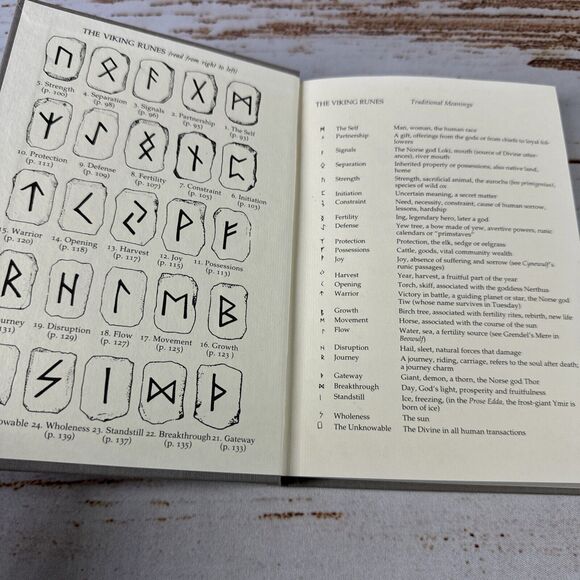 THE VIKING RUNES (read from right to left)
5. Strength
(p. 100)
4. Separation
(p. 98)
3. Signals
(p. 96)
2. Partnership
(p. 95)
1. The Self
(p. 93)
10. Protection
(p. 111)
9. Defense
(p. 109)
8. Fertility
(p. 107)
7. Constraint
(p. 105)
6. Initiation
(p. 103)
15. Warrior
(p. 120)
14. Opening
(p. 118)
13. Harvest
(p. 117)
12. Joy
(p. 115)
11. Possessions
(p. 113)
ourney
131)
19. Disruption
(p. 129)
18. Flow
(p. 127)
17. Movement
(p. 125)
16. Growth
(p. 123)
owable 24. Wholeness 23. Standstill 22. Breakthrough 21. Gateway
(p. 139)
(p. 137)
(p. 135)
(p. 133)
THE VIKING RUNES Traditional Meanings
ᛗ The Self Man, woman, the human race
Partnership A gift, offerings from the gods or from chiefs to loyal fol-
lowers
Signals The Norse god Loki, mouth (source of Divine utter-
ances), river mouth
Separation Inherited property or possessions, also native land,
home
Strength Strength, sacrificial animal, the aurochs (bos primigenius),
species of wild ox
Initiation Uncertain meaning, a secret matter
Constraint Need, necessity, constraint, cause of human sorrow,
lessons, hardship
Fertility Ing, legendary hero, later a god
Defense Yew tree, a bow made of yew, avertive powers, runic
calendars or "primstaves"
Protection Protection, the elk, sedge or eelgrass
Possessions Cattle, goods, vital community wealth
Joy Joy, absence of suffering and sorrow (see Cynewulf's
runic passages)
Harvest Year, harvest, a fruitful part of the year
Opening Torch, skiff, associated with the goddess Nerthus
Warrior Victory in battle, a guiding planet or star, the Norse god
Tiw (whose name survives in Tuesday)
ᛒ Growth Birch tree, associated with fertility rites, rebirth, new life
Movement Horse, associated with the course of the sun
Flow Water, sea, a fertility source (see Grendel's Mere in
Beowulf)
Disruption Hail, sleet, natural forces that damage
ᚱ Journey A journey, riding, carriage, refers to the soul after death;
a journey charm
ᚦ Gateway Giant, demon, a thorn, the Norse god Thor
ᛞ Breakthrough Day, God's light, prosperity and fruitfulness
ᛁ Standstill Ice, freezing, (in the Prose Edda, the frost-giant Ymir is
born of ice)
Wholeness The sun
The Unknowable The Divine in all human transactions